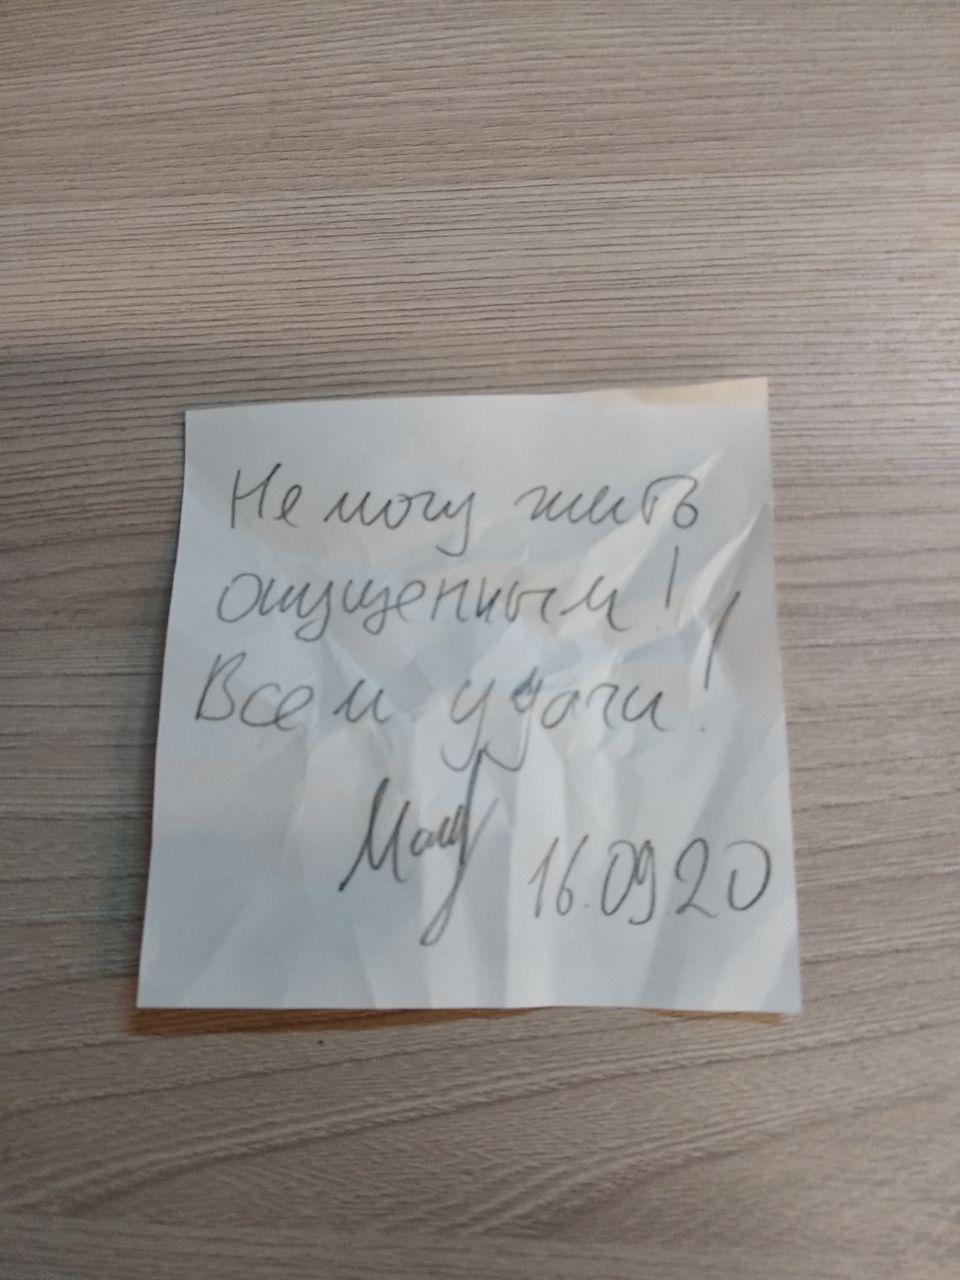 Не могу жить
ощущенным!
Всем удачи!
16.09.20